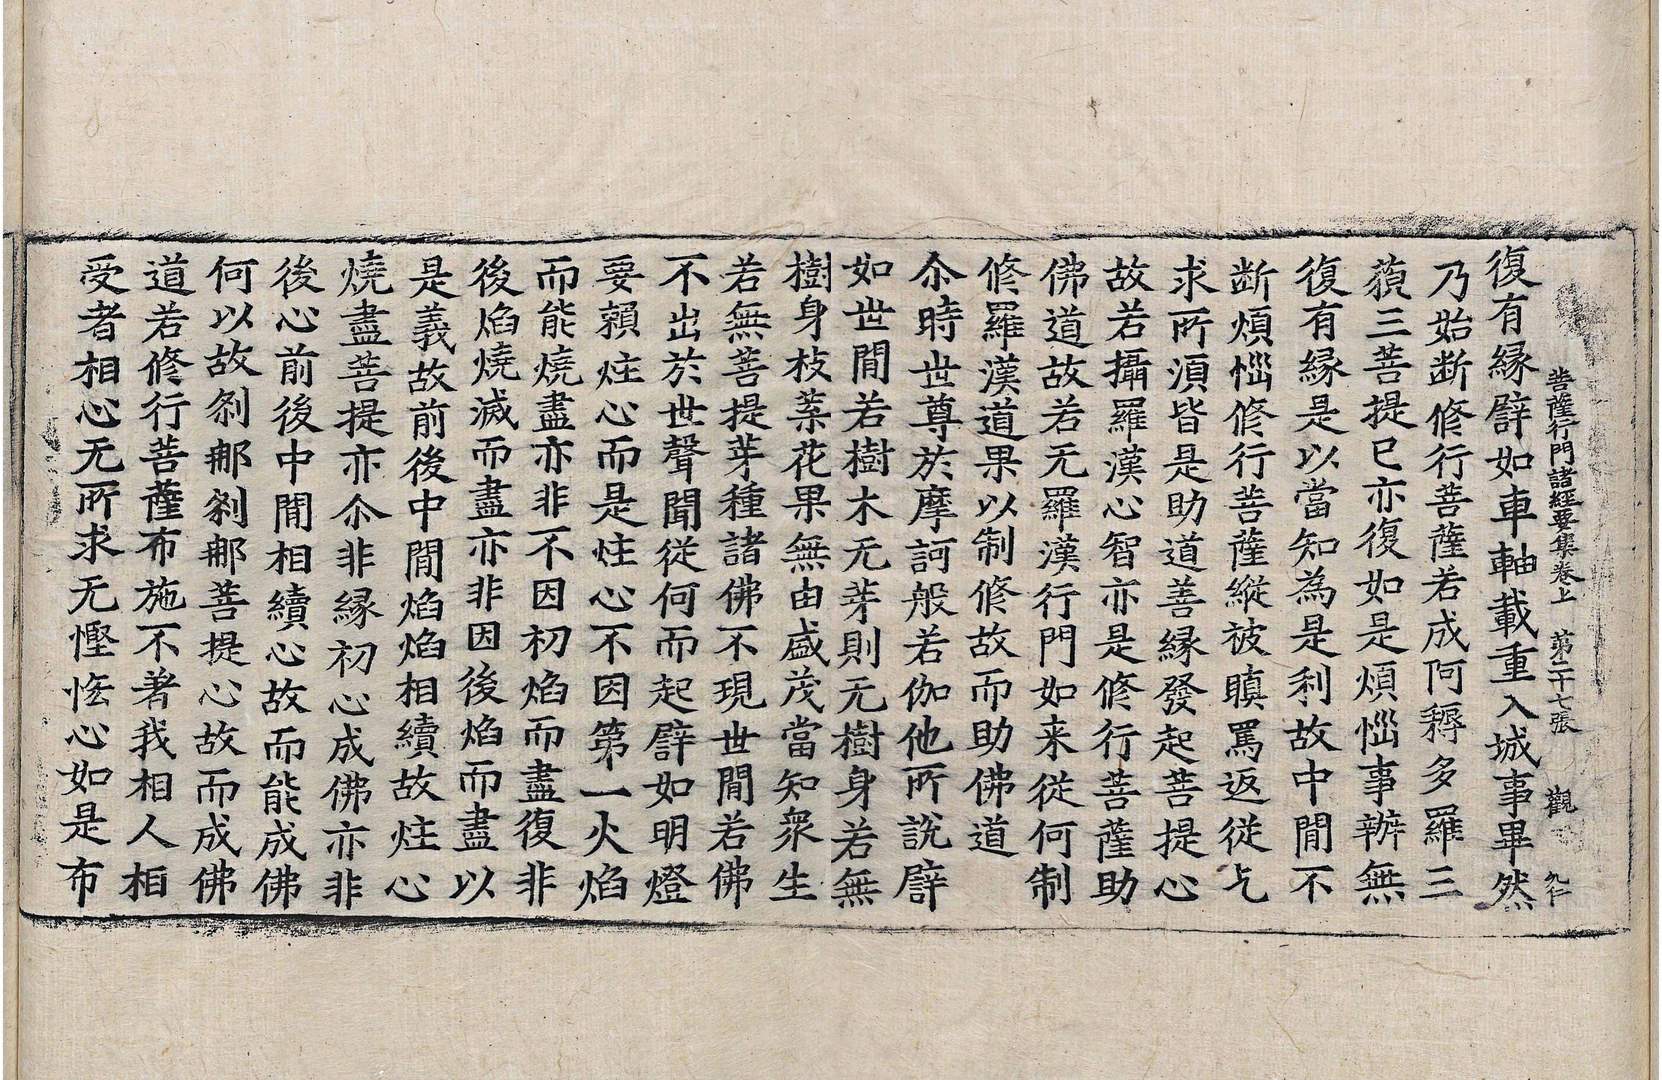 菩薩行門諸經要集卷上 第二十七張 觀 九仁
復有縁譬如車軸載重入城事畢然
乃始断修行菩薩若成阿耨多羅三
藐三菩提已亦復如是煩惱事辦無
復有縁是以當知為是利故中間不
断煩惱修行菩薩縱被瞋罵返從乞
求所湏皆是助道善縁發起菩提心
故若攝羅漢心智亦是修行菩薩助
佛道故若无羅漢行門如来從何制
修羅漢道果以制修故而助佛道
尒時世尊於摩訶般若伽他所說譬
如世間若樹木无芽則无樹身若無
樹身枝葉花果無由盛茂當知衆生
若無菩提芽種諸佛不現世間若佛
不出於世聲聞從何而起譬如明燈
要賴炷心而是炷心不因第一火焰
而能燒盡亦非不因初焰而盡復非
後焰燒滅而盡亦非因後焰而盡以
是義故前後中間焰焰相續故炷心
燒盡菩提亦尒非縁初心成佛亦非
後心前後中間相續心故而能成佛
何以故刹那刹那菩提心故而成佛
道若修行菩薩布施不著我相人相
受者相心无所求无慳悋心如是布